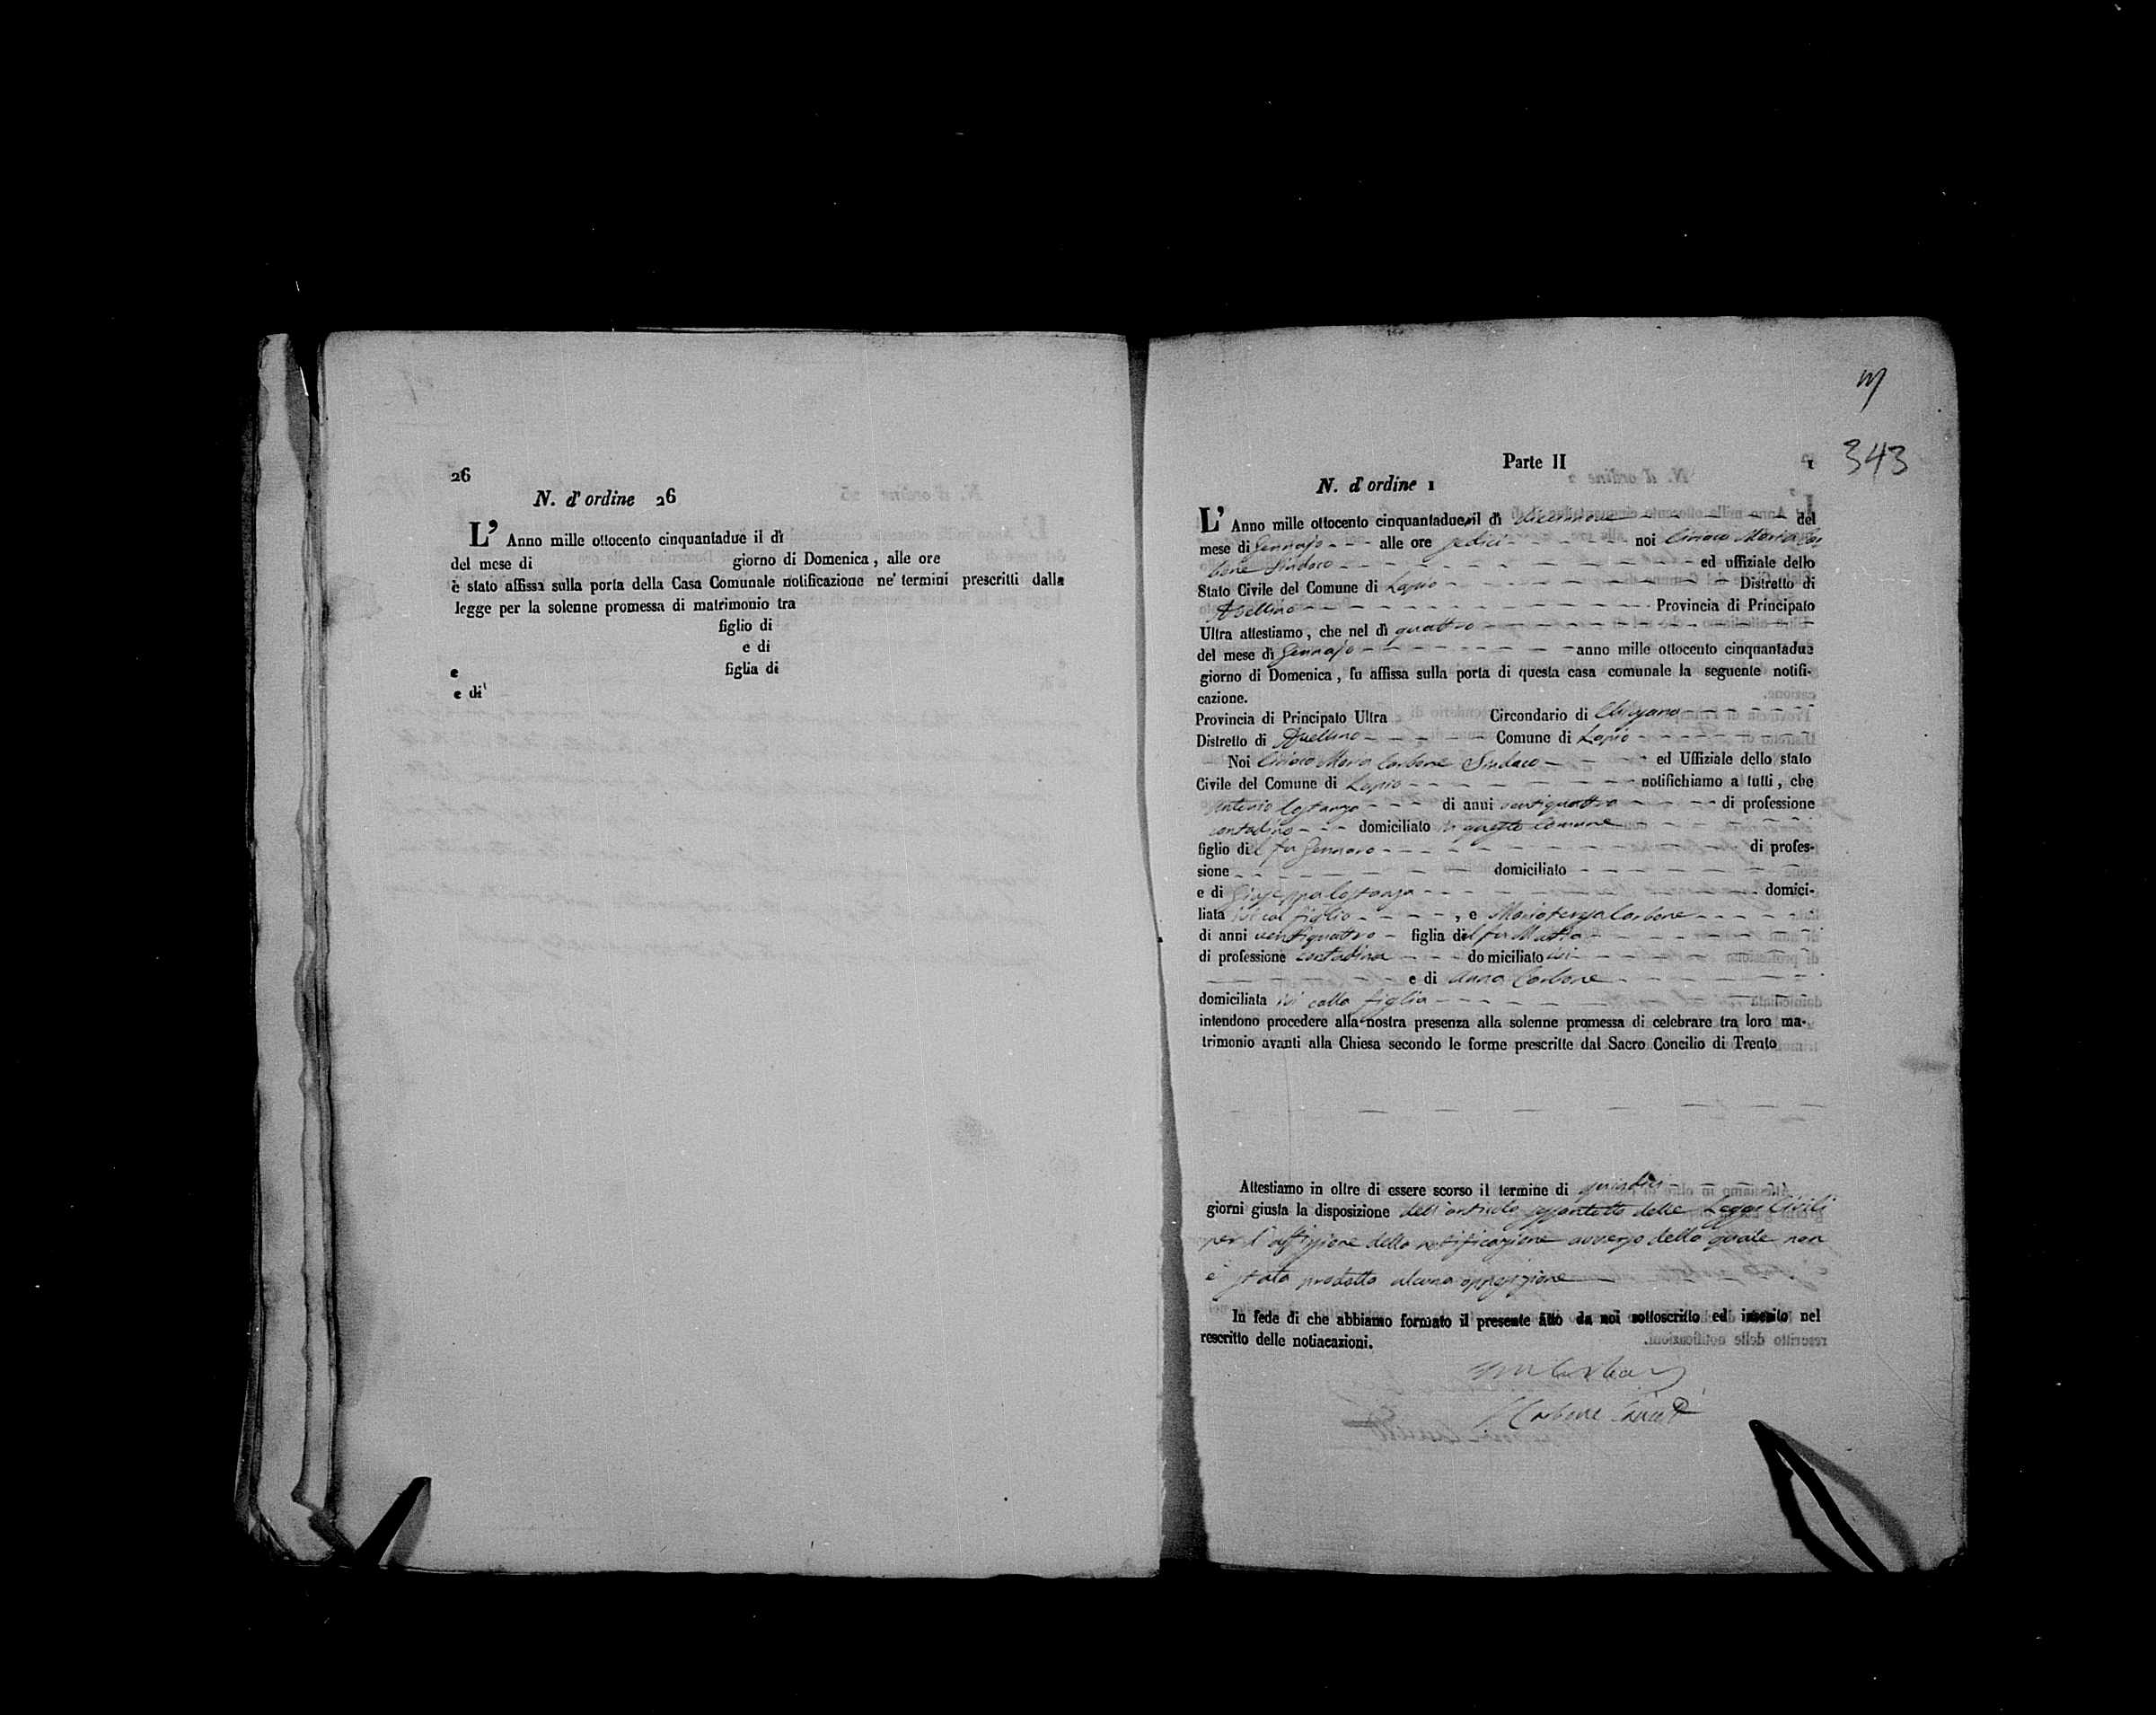 26
N. d'ordine 26
L' Anno mille ottocento cinquantadue il dì
del mese di giorno di Domenica, alle ore
è stato affissa sulla porta della Casa Comunale notificazione ne' termini prescritti dalla
legge per la solenne promessa di matrimonio tra
figlio di
e di
e figlia di
e di
343
Parte II 1
N. d'ordine 1
L' Anno mille ottocento cinquantadue il dì diecinnove del
mese di Gennajo alle ore sedici noi Ciriaco Maria Car-
bone Sindaco ed uffiziale dello
Stato Civile del Comune di Lapio Distretto di
Avellino Provincia di Principato
Ultra attestiamo, che nel dì quattro
del mese di Gennajo anno mille ottocento cinquantadue
giorno di Domenica, fu affissa sulla porta di questa casa comunale la seguente notifi-
cazione.
Provincia di Principato Ultra Circondario di Chiusano
Distretto di Avellino Comune di Lapio
Noi Ciriaco Maria Carbone Sindaco ed Uffiziale dello stato
Civile del Comune di Lapio notifichiamo a tutti, che
Antonio Costanza di anni ventiquattro di professione
contadino domiciliato in questo comune
figlio del fu Gennaro di profes-
sione domiciliato
e di Giuseppa Costanza domici-
liata ivi col figlio, e Mariateresa Carbone
di anni ventiquattro figlia del fu Mattia
di professione contadina domiciliato ivi
e di Anna Carbone
domiciliata ivi colla figlia
intendono procedere alla nostra presenza alla solenne promessa di celebrare tra loro ma-
trimonio avanti alla Chiesa secondo le forme prescritte dal Sacro Concilio di Trento
Attestiamo in oltre di essere scorso il termine di quindici
giorni giusta la disposizione dell'articolo settantotto delle Leggi Civili
per l'affissione della notificazione avverso della quale non
è stata prodotta alcuna opposizione
In fede di che abbiamo formato il presente atto da noi sottoscritto ed inserito nel
rescritto delle notiacazioni.
Carbone